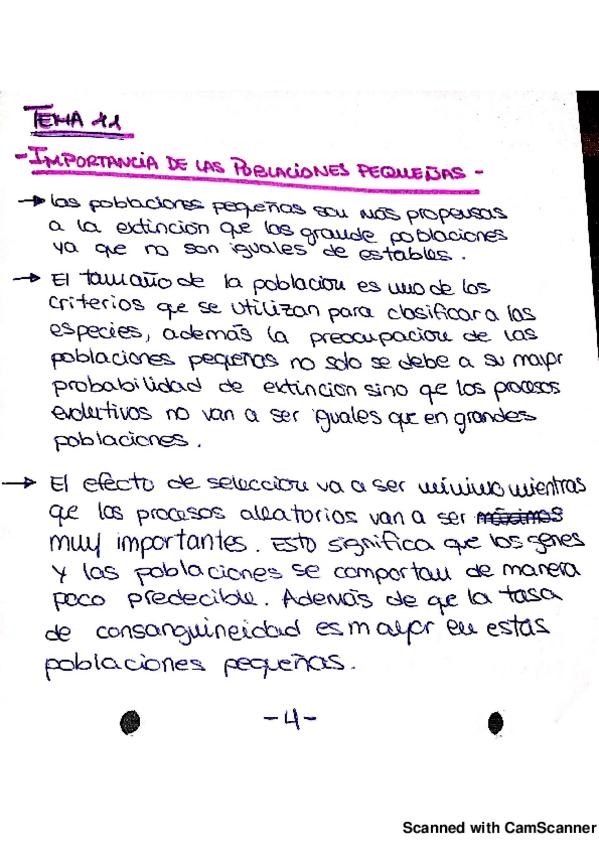 TEMA 11
- IMPORTANCIA DE LAS POBLACIONES PEQUEÑAS -
→ Las poblaciones pequeñas son más propensas
a la extinción que las grande poblaciones
ya que no son iguales de estables.
→ El tamaño de la población es uno de los
criterios que se utilizan para clasificar a las
especies, además la preocupación de las
poblaciones pequeñas no solo se debe a su mayor
probabilidad de extinción sino que los procesos
evolutivos no van a ser iguales que en grandes
poblaciones.
→ El efecto de selección va a ser mínimo mientras
que los procesos aleatorios van a ser máximos
muy importantes. Esto significa que los genes
y las poblaciones se comportan de manera
poco predecible. Además de que la tasa
de consanguineidad es mayor en estas
poblaciones pequeñas.
-4-
Scanned with CamScanner